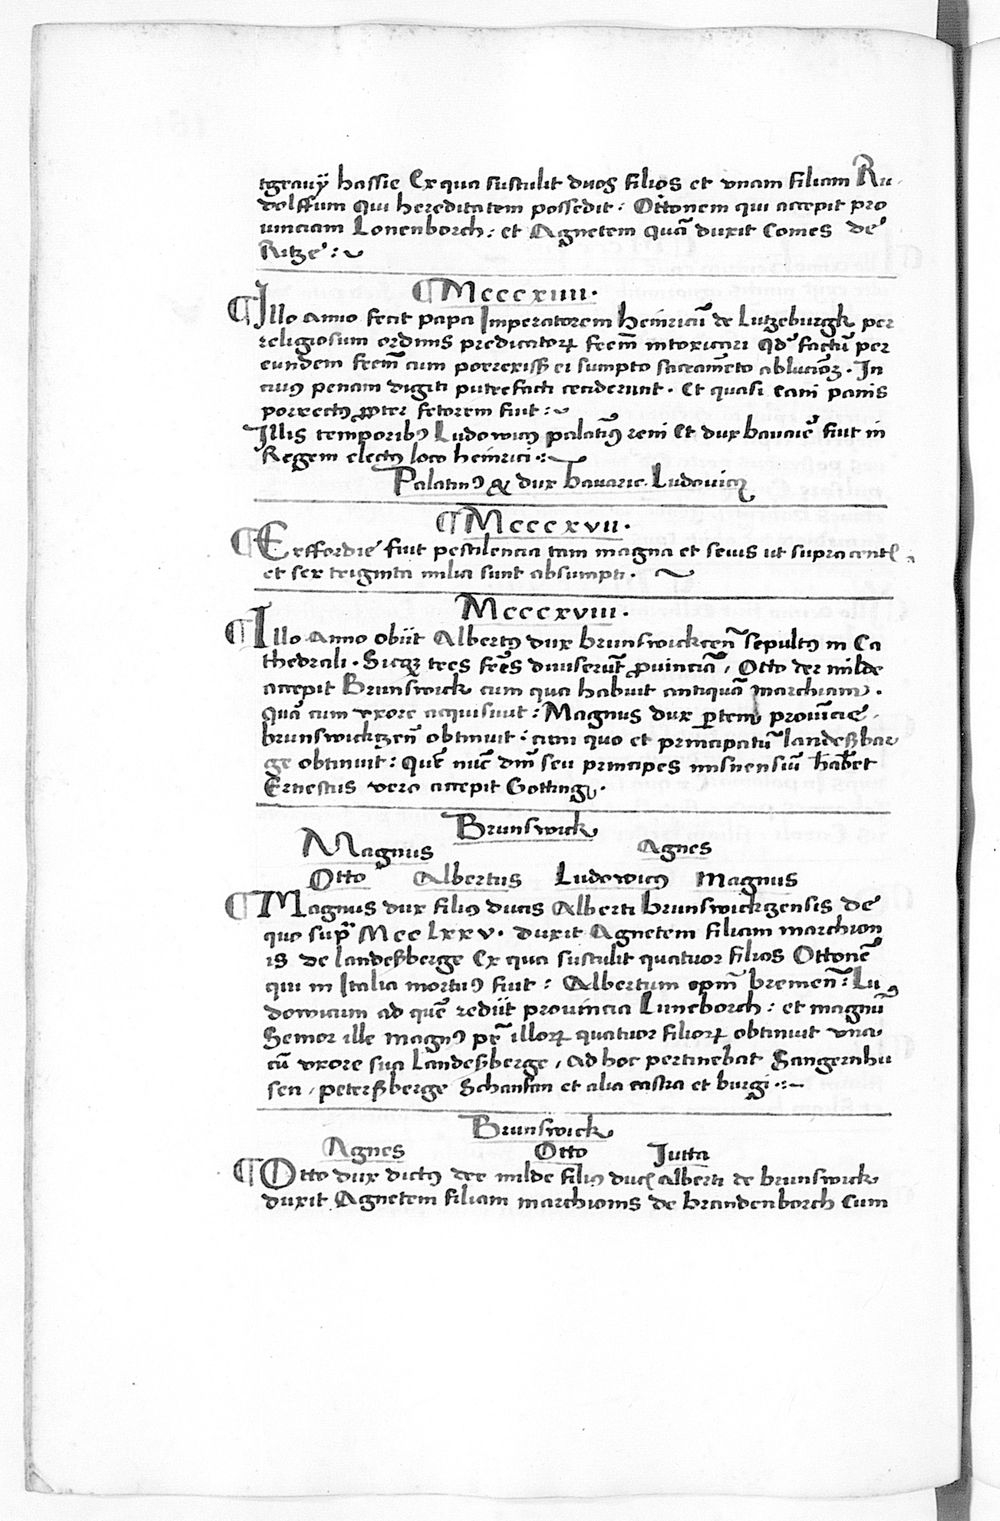 tgrauij hassie Ex qua sustulit duos filios et vnam filiam Ru
dolffum qui hereditatem possedit : Ottonem qui accepit pro
uinciam Lonenborch : et Agnetem quā duxit Comes de
Ritze :~
¶ Mcccxiiii .
¶ Illo Anno fecit papa Imperatorem Heinricū de Lutzeburgk per
religiosum ordinis predicatorꝝ intoxicari qd factū per
eundem cum porrexisset ei sumpto sacramēto In
cuius penam digiti putrefacti ceciderunt . Et quasi cani panis
porrectꝰ ꝓpter fetorem fuit :~
Illis temporibꝰ Ludowicꝰ palatinꝰ reni Et dux bauarie fiut in
Regem electꝰ loco heinrici :~
Palatinꝰ & dux bauarie Ludouicꝰ
¶ Mcccxvii .
¶ Erffordie fiut pestilencia tam magna et seuis ut supra
et sex triginta milia sunt absumpti . ~
Mcccxviii .
¶ Illo Anno obiit Albertꝰ dux brunswickcen̄ sepultꝰ in Ca
thedrali . Sicqꝫ tres diuiserūt ꝓuinciā , Otto der milde
accepit Brunswick cum qua habuit antiquā marchiam .
Quā cum vxore acquisiuit : Magnus dux ꝑtem prouīcie
brunswicktzen̄ obtinuit : cum quo et principatū landeßbar
ge obtinuit : Quē nūc dm̄ seu principes misnensiū habet
Ernestus vero accepit Gotting .
Brunswick
Magnus Agnes
Otto Albertus Ludowicꝰ Magnus
¶ Magnus dux filiꝰ ducis Alberti brunswicktzensis de
quo sup̄ Mcclxxv . duxit Agnetem filiam marchion
is de landeßberge Ex qua sustulit quatuor filios Ottonē
qui in Italia mortuꝰ fiut : Albertum epm̄ bremen̄ : Lu
dowicum ad quē rediit prouincia Luneborch : et magnū
Semor ille magnꝰ pr̄ illorꝝ quatuor filiorꝝ obtinuit vna
cū vxore sua Landeßberge , ad hoc pertinebat Sangernhu
sen , peterßberge Schansan et alia castra et burgi :~
Brunswick
Agnes Otto Jutta
¶ Otto dux dictꝰ der milde filiꝰ ducis alberti de brunswick
duxit Agnetem filiam marchionis de brandenborch Cum